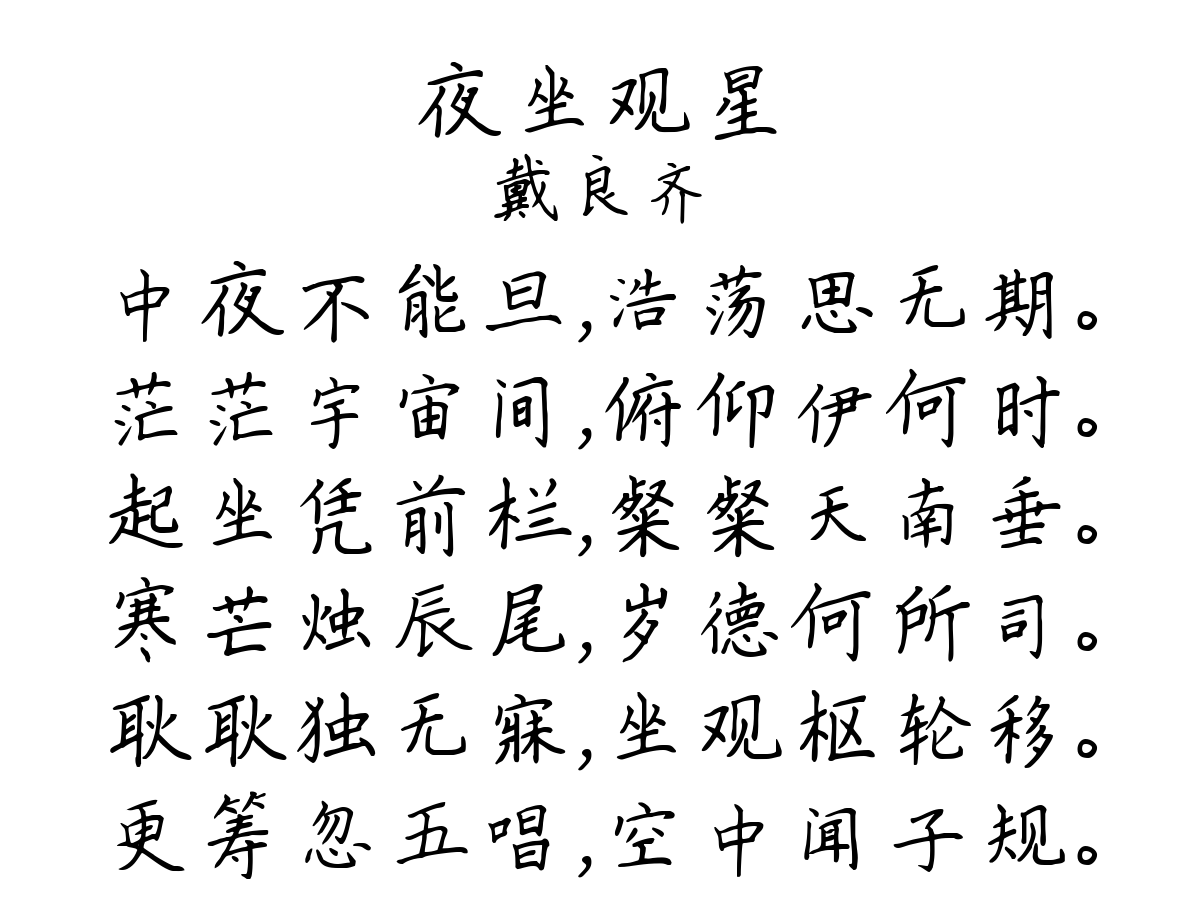 夜坐观星
戴良齐
中夜不能旦,浩荡思无期。
茫茫宇宙间,俯仰伊何时。
起坐凭前栏,粲粲天南垂。
寒芒烛辰尾,岁德何所司。
耿耿独无寐,坐观枢轮移。
更筹忽五唱,空中闻子规。